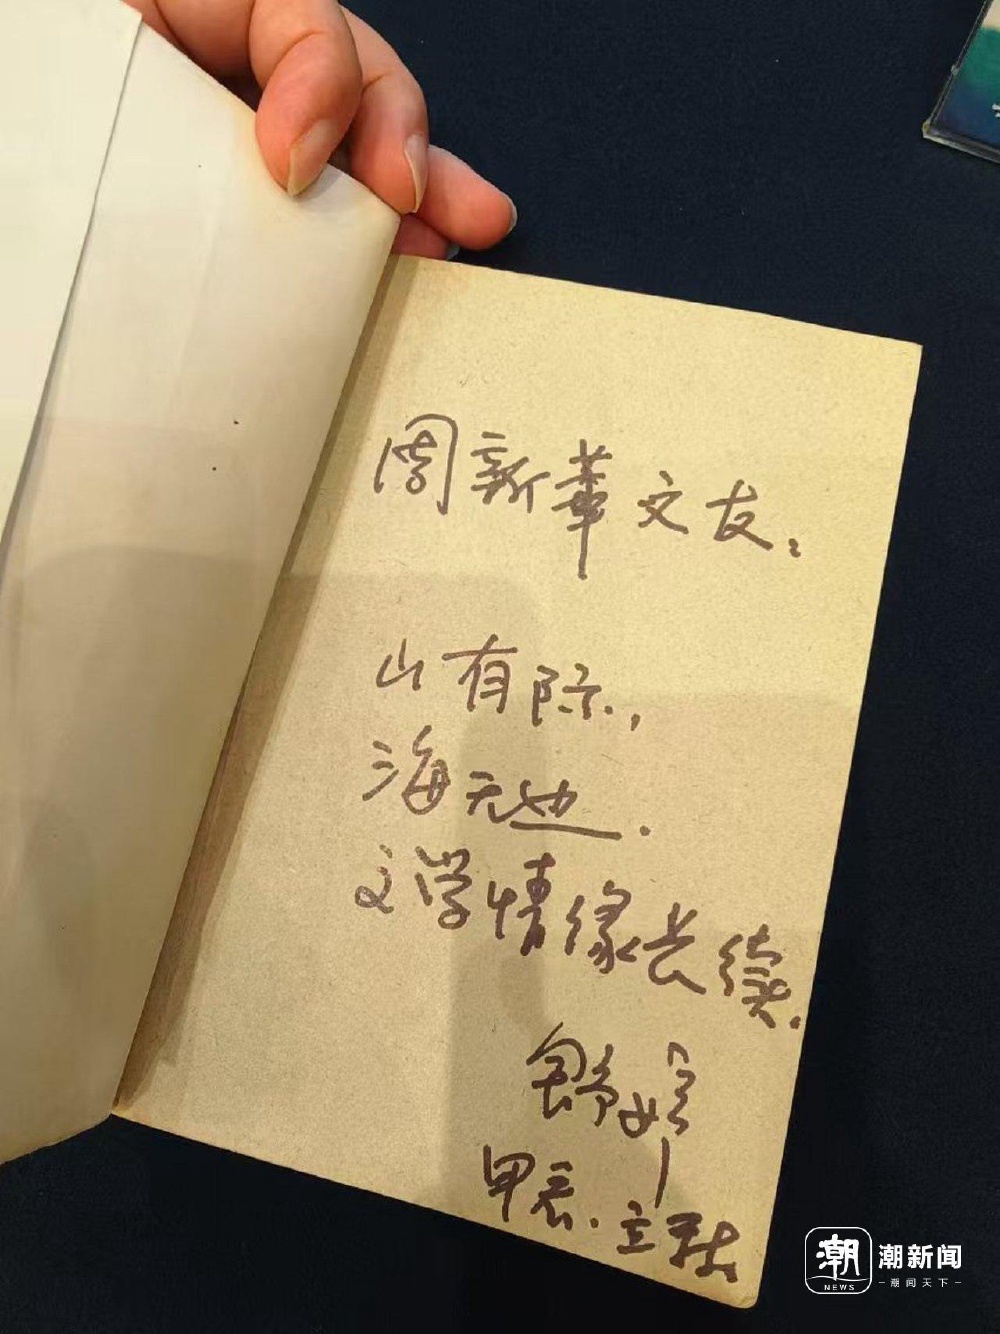 周新華文友：
山有际，
海无边.
文学情缘长续.
舒婷
甲辰.立秋
潮
NEWS
潮新闻
潮闻天下